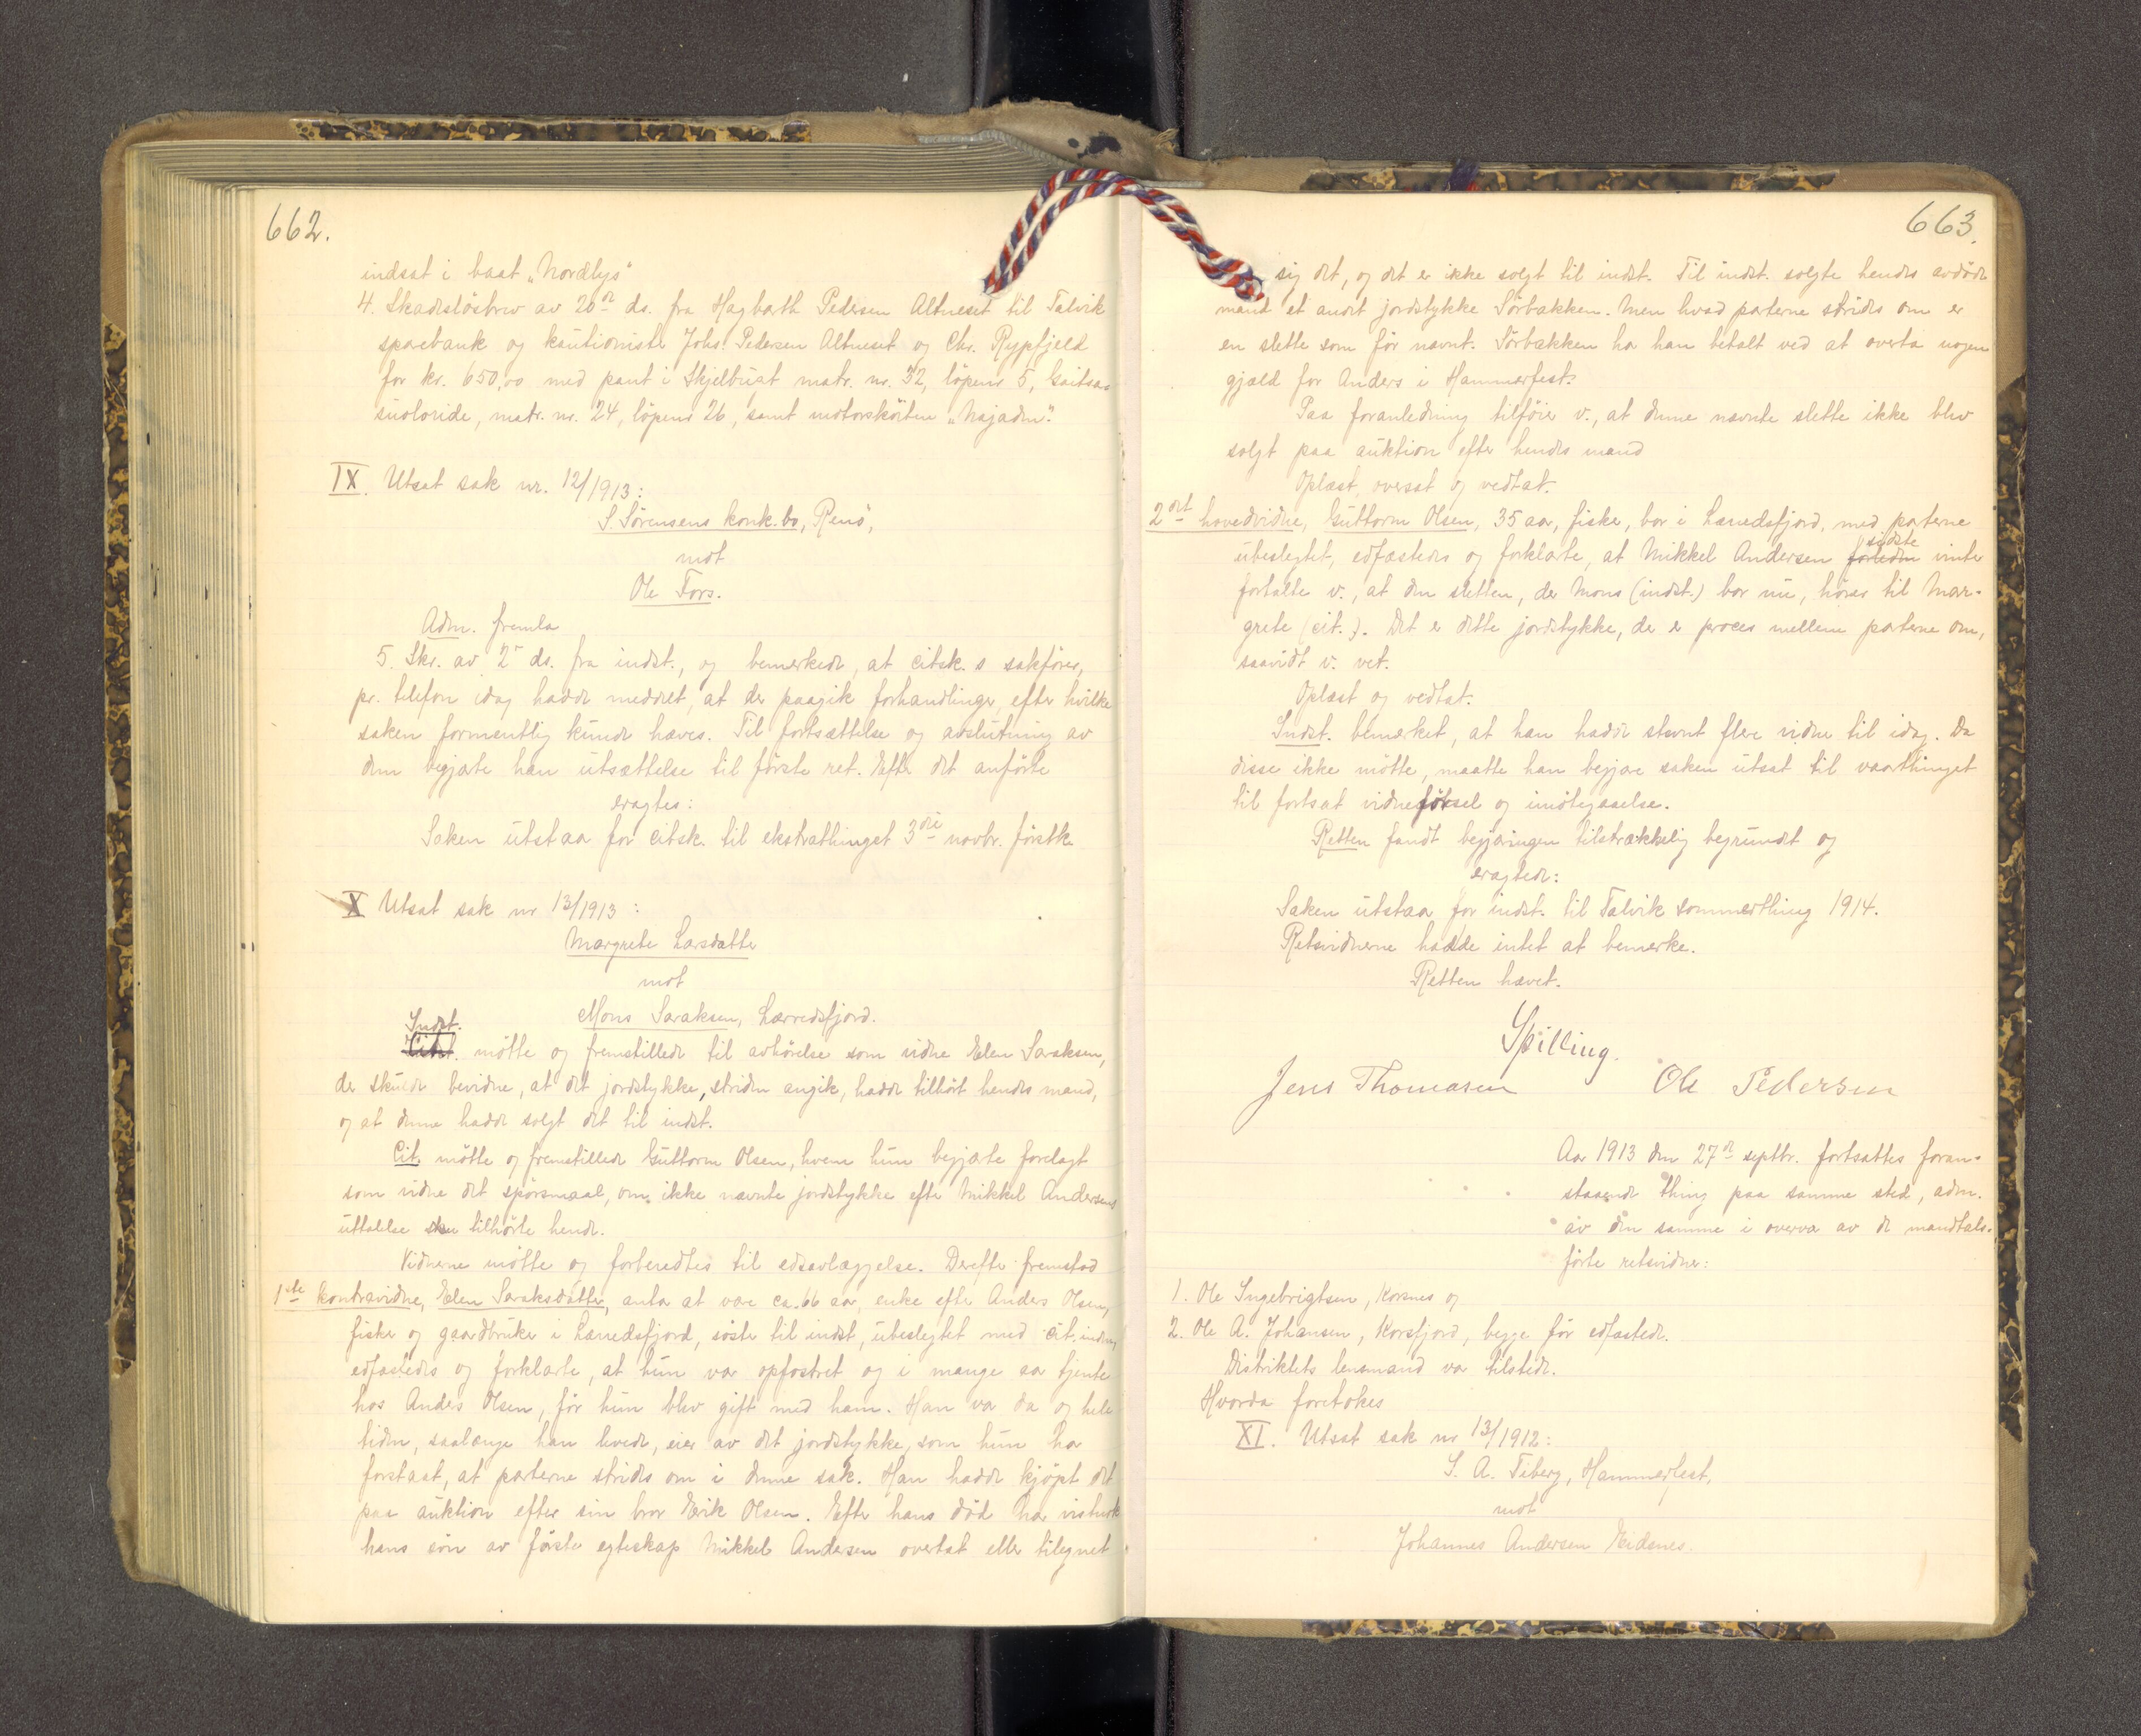 662.
indsat i baat „Nordlys"
4. Skadesløsbrev av 20de ds. fra Hagbarth Pedersen Altneset til Talvik
sparebank og kautionister Johs. Pedersen Altneset og Chr. Rypfjeld
for kr. 650,00 med pant i Skjelbugt matr. nr. 32, løpenr 5,
matr. nr. 24, løpenr 26, samt motorskøiten „Najaden".
IX. Utsat sak nr. 12/1913:
S. Sørensens konk.bo, Renø,
mot
Ole Fors.
Adm. fremla
5. Skr. av 2den ds. fra indst., og bemerkede, at citsk.s sakfører,
pr. telefon idag hadde meddelt, at der paagik forhandlinger, efter hvilke
saken formentlig kunde hæves. Til fortsættelse og avslutning av
dem begjærte han utsættelse til første ret. Efter det anførte
eragtes:
Saken utstaar for citsk. til ekstrathinget 3die novbr. førstk.
X Utsat sak nr 13/1913:
Margrete Larsdatter
mot
Mons Saraksen, Lærredsfjord.
Indst.
Citst. møtte og fremstillede til avhørelse som vidne Elen Saraksen,
der skulde bevidne, at det jordstykke, striden angik, hadde tilhørt hendes mand,
og at denne hadde solgt det til indst.
Cit. møtte og fremstillede Guttorm Olsen, hvem hun begjærte forelagt
som vidne det spørsmaal, om ikke nævnte jordstykke efter Mikkel Andersens
uttalelse tilhørte hende.
Vidnerne møtte og forberedtes til edsavlæggelse. Derefter fremstod
1ste kontravidne, Elen Saraksdatter, antar at være ca. 66 aar, enke efter Anders Olsen,
fisker og gaardbruker i Lærredsfjord, søster til indst., ubeslegtet med cit.inden,
edfæstedes og forklarte, at hun var opfostret og i mange aar tjente
hos Anders Olsen, før hun blev gift med ham. Han var da og hele
tiden, saalænge han levede, eier av det jordstykke, som hun har
forstaat, at parterne strides om i denne sak. Han hadde kjøpt det
paa auktion efter sin bror Erik Olsen. Efter hans død har vistnok
hans søn av første egteskap Mikkel Andersen overtat eller tilegnet
663.
sig det, og det er ikke solgt til indst. Til indst. solgte hendes avdøde
mand et andet jordstykke Sørbakken. Men hvad parterne strides om er
en slette som før nævnt. Sørbakken har han betalt ved at overta nogen
gjæld for Anders i Hammerfest.
Paa foranledning tilføier v., at denne nævnte slette ikke blev
solgt paa auktion efter hendes mand
Oplæst, oversat og vedtat.
2det hovedvidne, Guttorm Olsen, 35 aar, fisker, bor i Lærredsfjord, med parterne
sidste
ubeslegtet, edfæstedes og forklarte, at Mikkel Andersen forleden vinter
fortalte v., at den sletten, der Mons (indst.) bor nu, hører til Mar-
grete (cit.). Det er dette jordstykke, der er proces mellem parterne om,
saavidt v. vet.
Oplæst og vedtat.
Indst. bemerket, at han hadde stevnt flere vidner til idag. Da
disse ikke møtte, maatte han begjære saken utsat til vaarthinget
til fortsat vidneførsel og imøtegaaelse.
Retten fandt begjæringen tilstrækkelig begrundet og
eragtede:
Saken utstaar for indst. til Talvik sommerthing 1914.
Retsvidnerne hadde intet at bemerke.
Retten hævet.
Spilling.
Jens Thomasen Ole Pedersen
Aar 1913 den 27de septbr. fortsattes foran-
staaende thing paa samme sted, adm.
av den samme i overvær av de mandtals-
førte retsvidner:
1. Ole Ingebrigtsen, Korsnes og
2. Ole A. Johansen, Korsfjord, begge før edfæstede.
Distriktets lensmand var tilstede.
Hvorda foretokes
XI. Utsat sak nr 13/1912:
S. A. Tiberg, Hammerfest,
mot
Johannes Andersen Eidsnes.